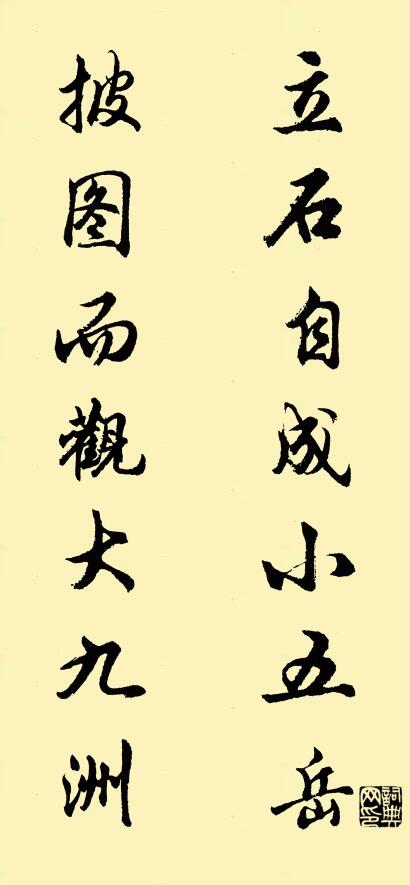 立石自成小五岳
披图而觀大九洲
詞典网